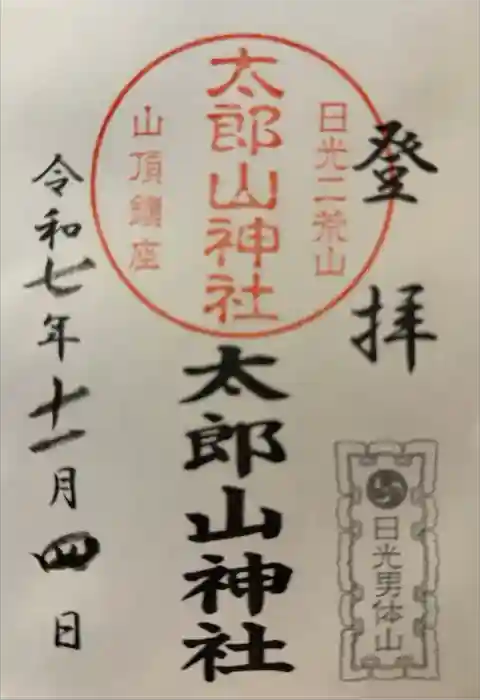 登拝
日光二荒山
太郎山神社
山頂鎮座
太郎山神社
日光男体山
令和七年十一月四日